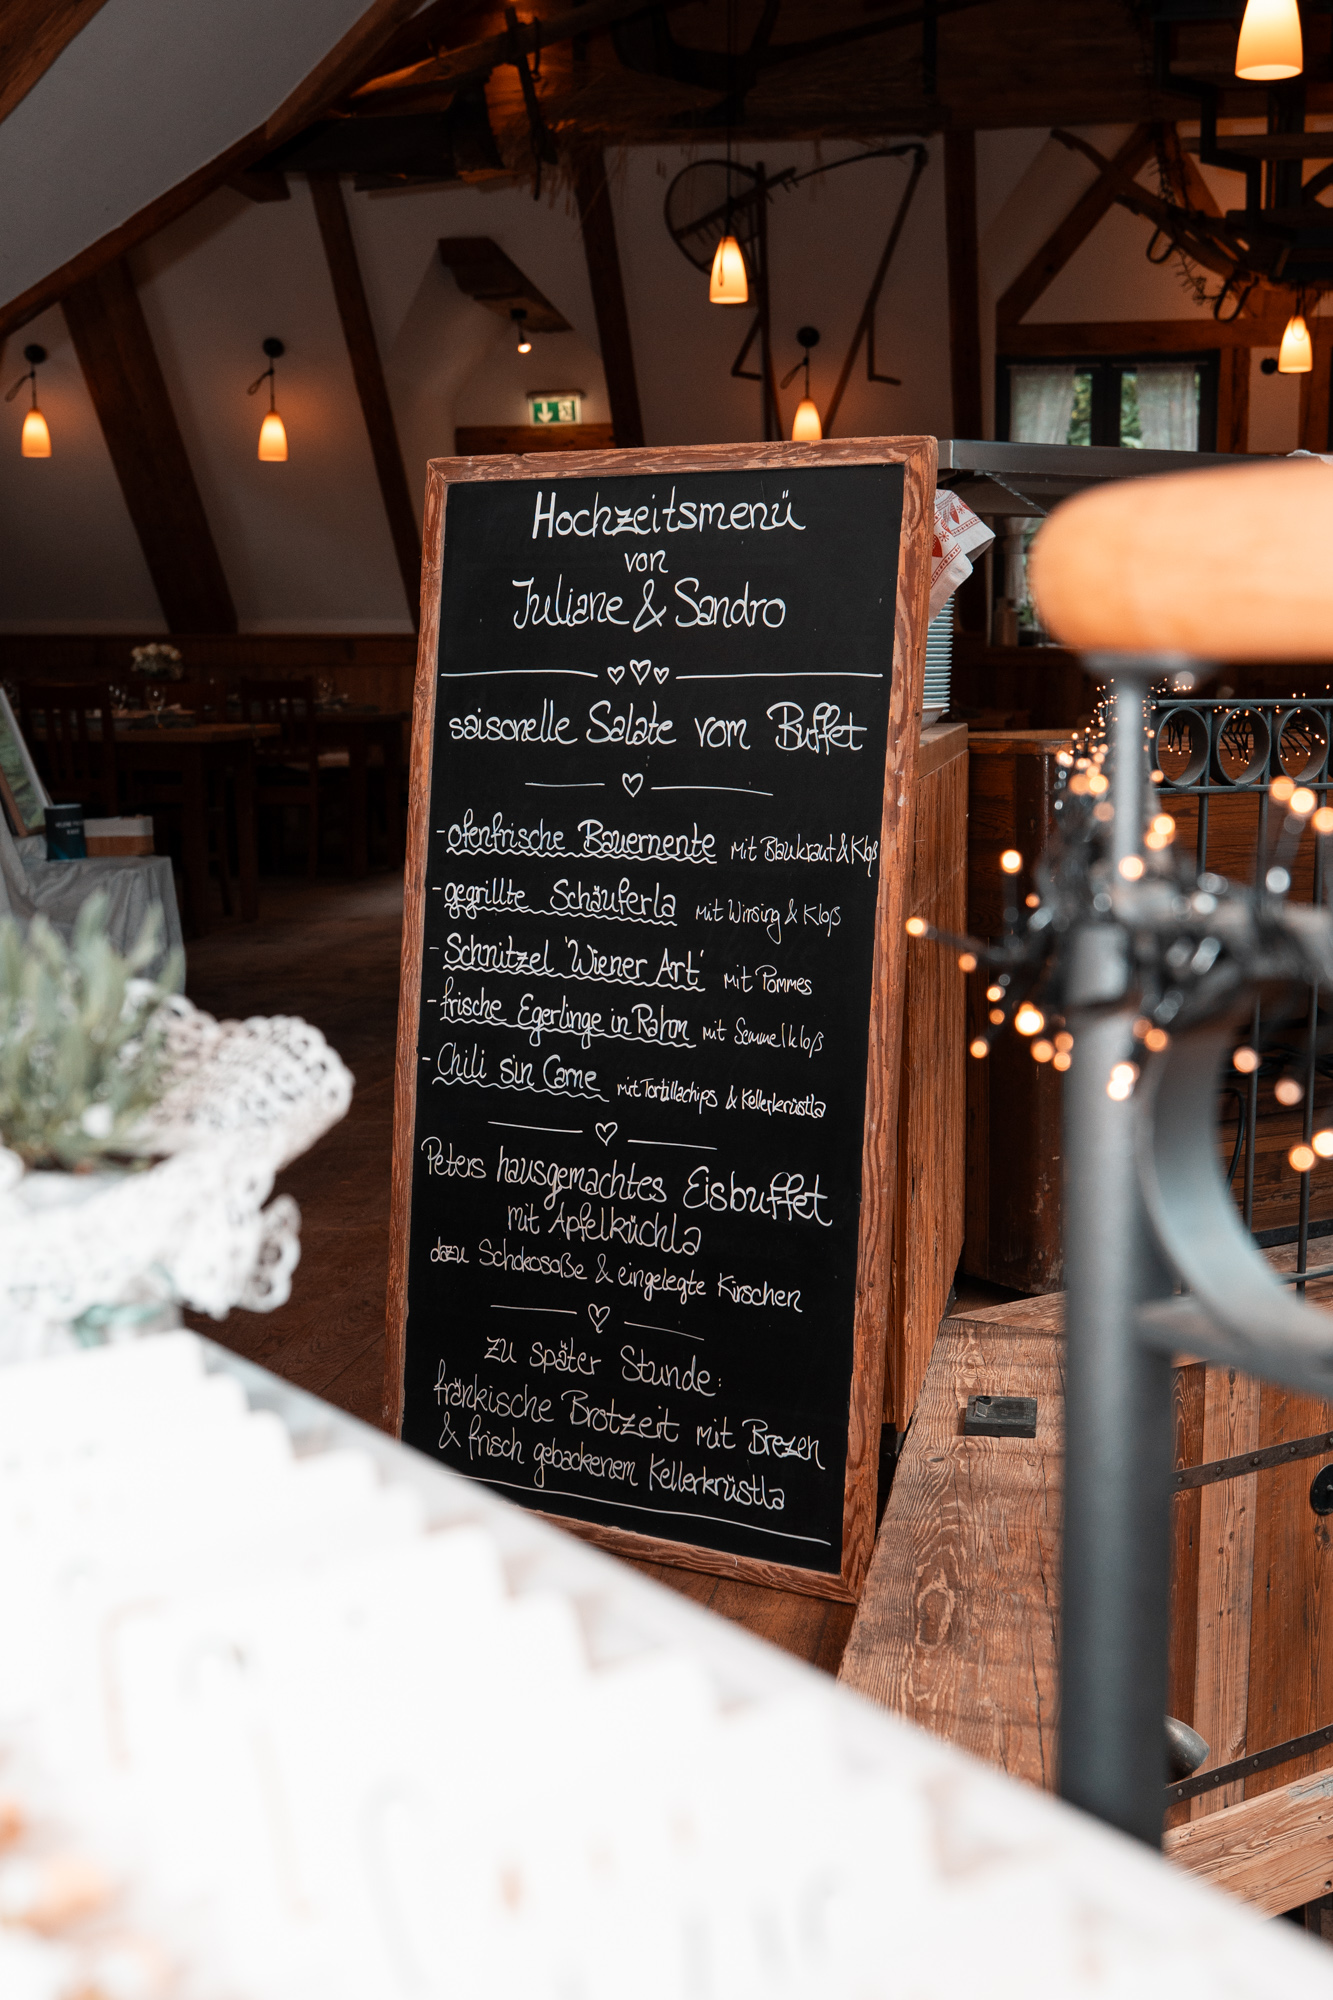 Hochzeitsmenü
von
Juliane & Sandro
saisonelle Salate vom Buffet
- ofenfrische Bauernente mit Blaukraut & Kloß
- gegrillte Schäuferla mit Wirsing & Kloß
- Schnitzel 'Wiener Art' mit Pommes
- frische Egerlinge in Rahm mit Semmelkloß
- Chili sin Carne mit Tortillachips & Kellerkrüstla
Peters hausgemachtes Eisbuffet
mit Apfelküchla
dazu Schokosoße & eingelegte Kirschen
zu später Stunde:
fränkische Brotzeit mit Brezen
& frisch gebackenem Kellerkrüstla